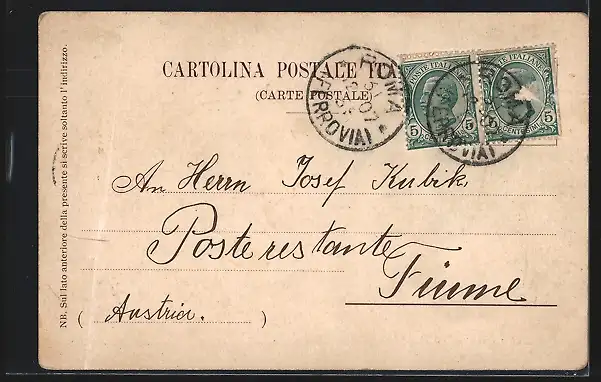 CARTOLINA POSTALE
(CARTE POSTALE)
ROMA
FERROVIA
POSTE ITALIANE
5 CENTESIMI 5
POSTE ITALIANE
5 CENTESIMI 5
FERROVIA
An Herrn Josef Kubik,
Poste restante
Fiume
(Austria.)
NB. Sul lato anteriore della presente si scrive soltanto l'indirizzo.